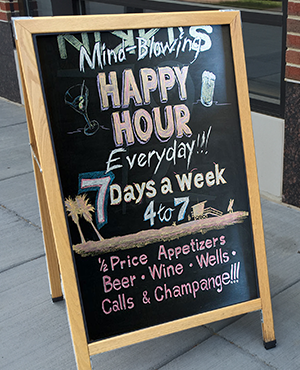 Mind-Blowing
HAPPY
HOUR
Everyday!!!
7 Days a week
4 to 7
½ Price Appetizers
Beer · Wine · Wells ·
Calls & Champange!!!